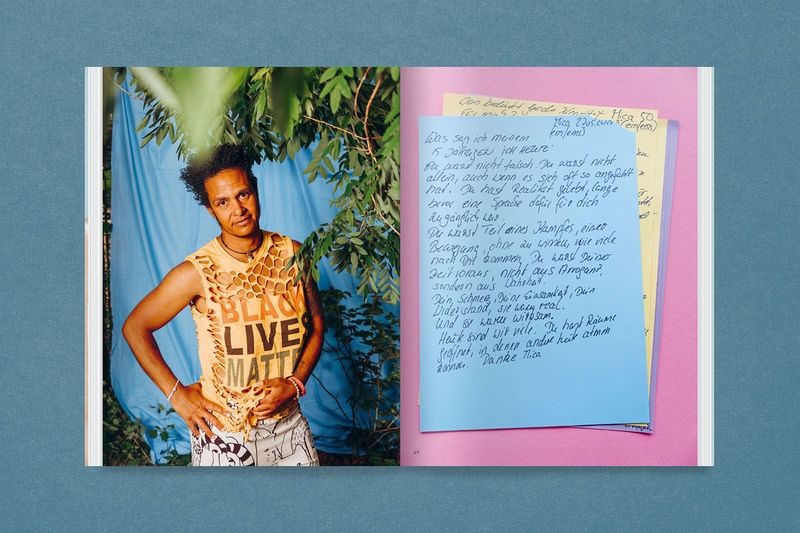 BLACK
LIVES
MATTE
Das bedeutet Mica 50
Mica, 27.05.
(em/ems)
Was sag ich meinem
15 JÄHRIGEN ICH HEUTE
Du warst nicht falsch. Du warst nicht
allein, auch wenn es sich oft so angefühlt
hat. Du hast Realität gelebt, lange
bevor eine Sprache dafür für dich
zugänglich war.
Du warst Teil eines Kampfes, einer
Bewegung, ohne zu wissen, wie viele
nach Dir kommen. Du warst Deiner
Zeit voraus, nicht aus Arroganz,
sondern aus Wahrheit.
Dein Schmerz, Deine Einsamkeit, Dein
Widerstand, sie waren real.
Und sie waren wirksam.
Heute sind wir viele. Du hast Räume
geöffnet, in denen andre heute atmen
können. Danke Mica